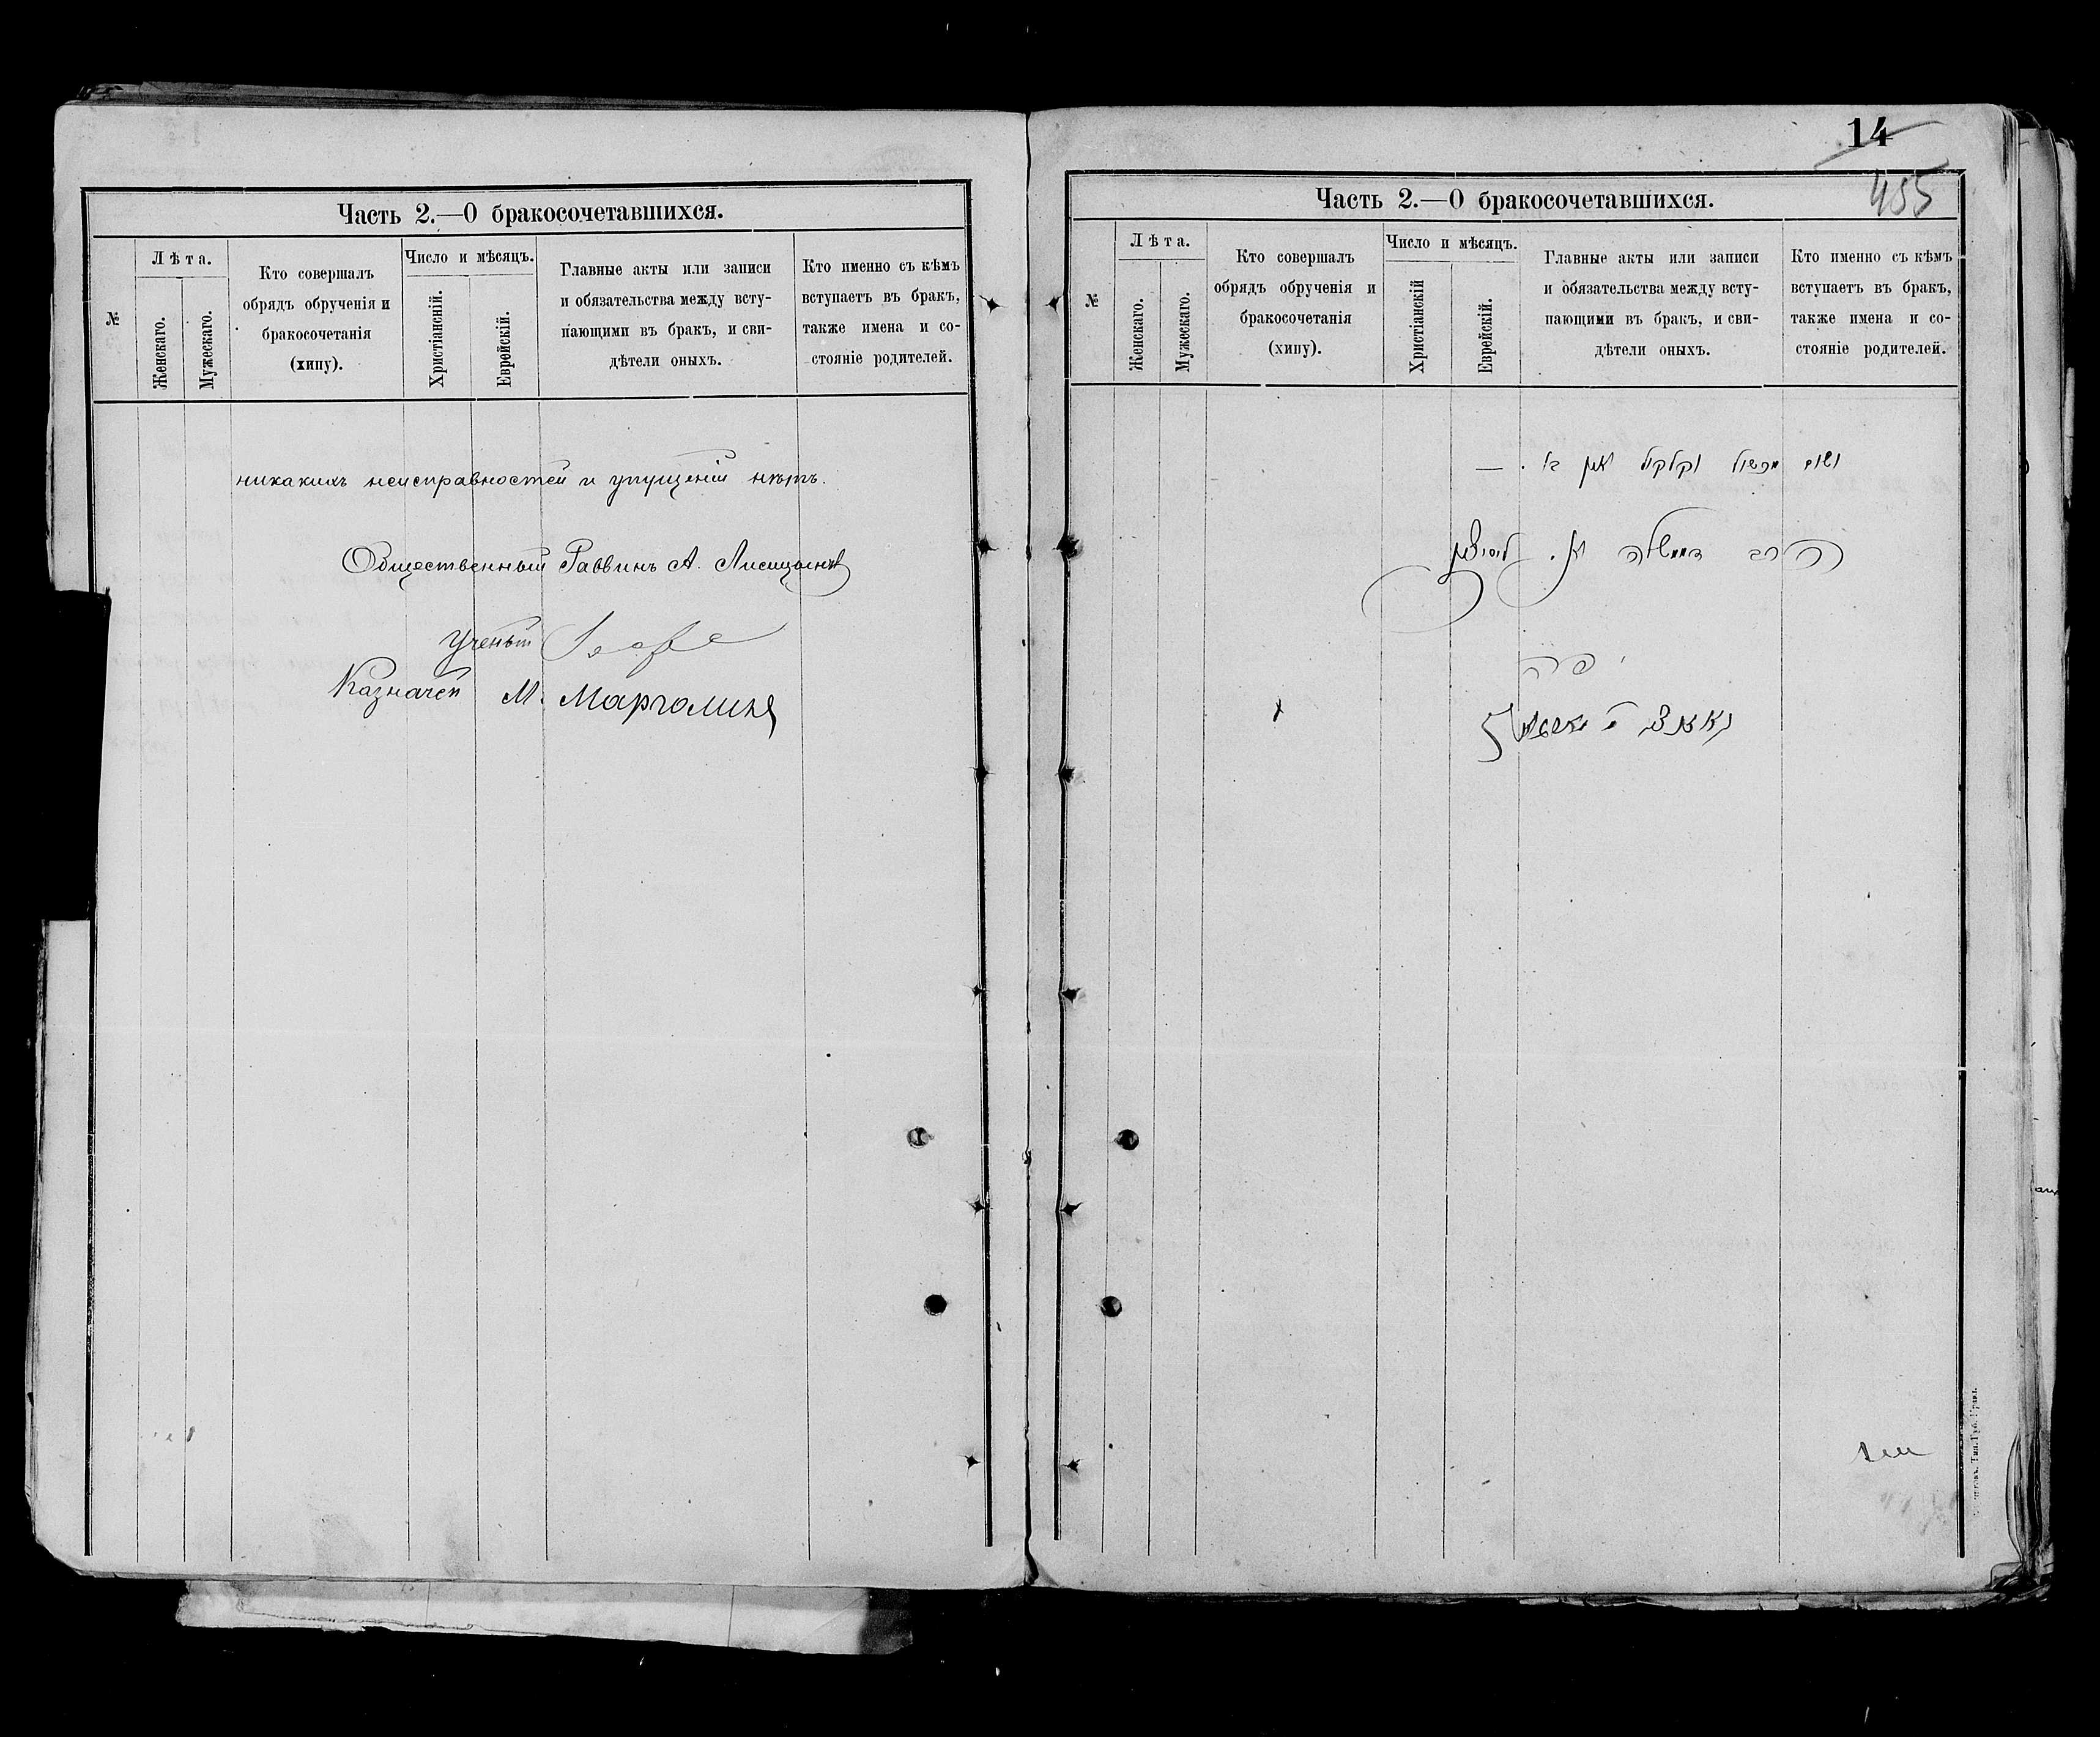 Часть 2.—О бракосочетавшихся.
№
Лѣта.
Женскаго.
Мужескаго.
Кто совершалъ
обрядъ обрученія и
бракосочетанія
(хипу).
Число и мѣсяцъ.
Христіанскій.
Еврейскій.
Главные акты или записи
и обязательства между всту-
пающими въ бракъ, и сви-
дѣтели оныхъ.
Кто именно съ кѣмъ
вступаетъ въ бракъ,
также имена и со-
стояніе родителей.
никакихъ неисправностей и упущеній нѣтъ.
Общественный Раввинъ А. Лисицынъ
Ученый
Казначей М. Марголинъ
14
455
Часть 2.—О бракосочетавшихся.
№
Лѣта.
Женскаго.
Мужескаго.
Кто совершалъ
обрядъ обрученія и
бракосочетанія
(хипу).
Число и мѣсяцъ.
Христіанскій
Еврейскій.
Главные акты или записи
и обязательства между всту-
пающими въ бракъ, и сви-
дѣтели оныхъ.
Кто именно съ кѣмъ
вступаетъ въ бракъ,
также имена и со-
стояніе родителей.
ושום מכשול וקלקול אין בו. —
הרב
Тип. Губ. Правл.